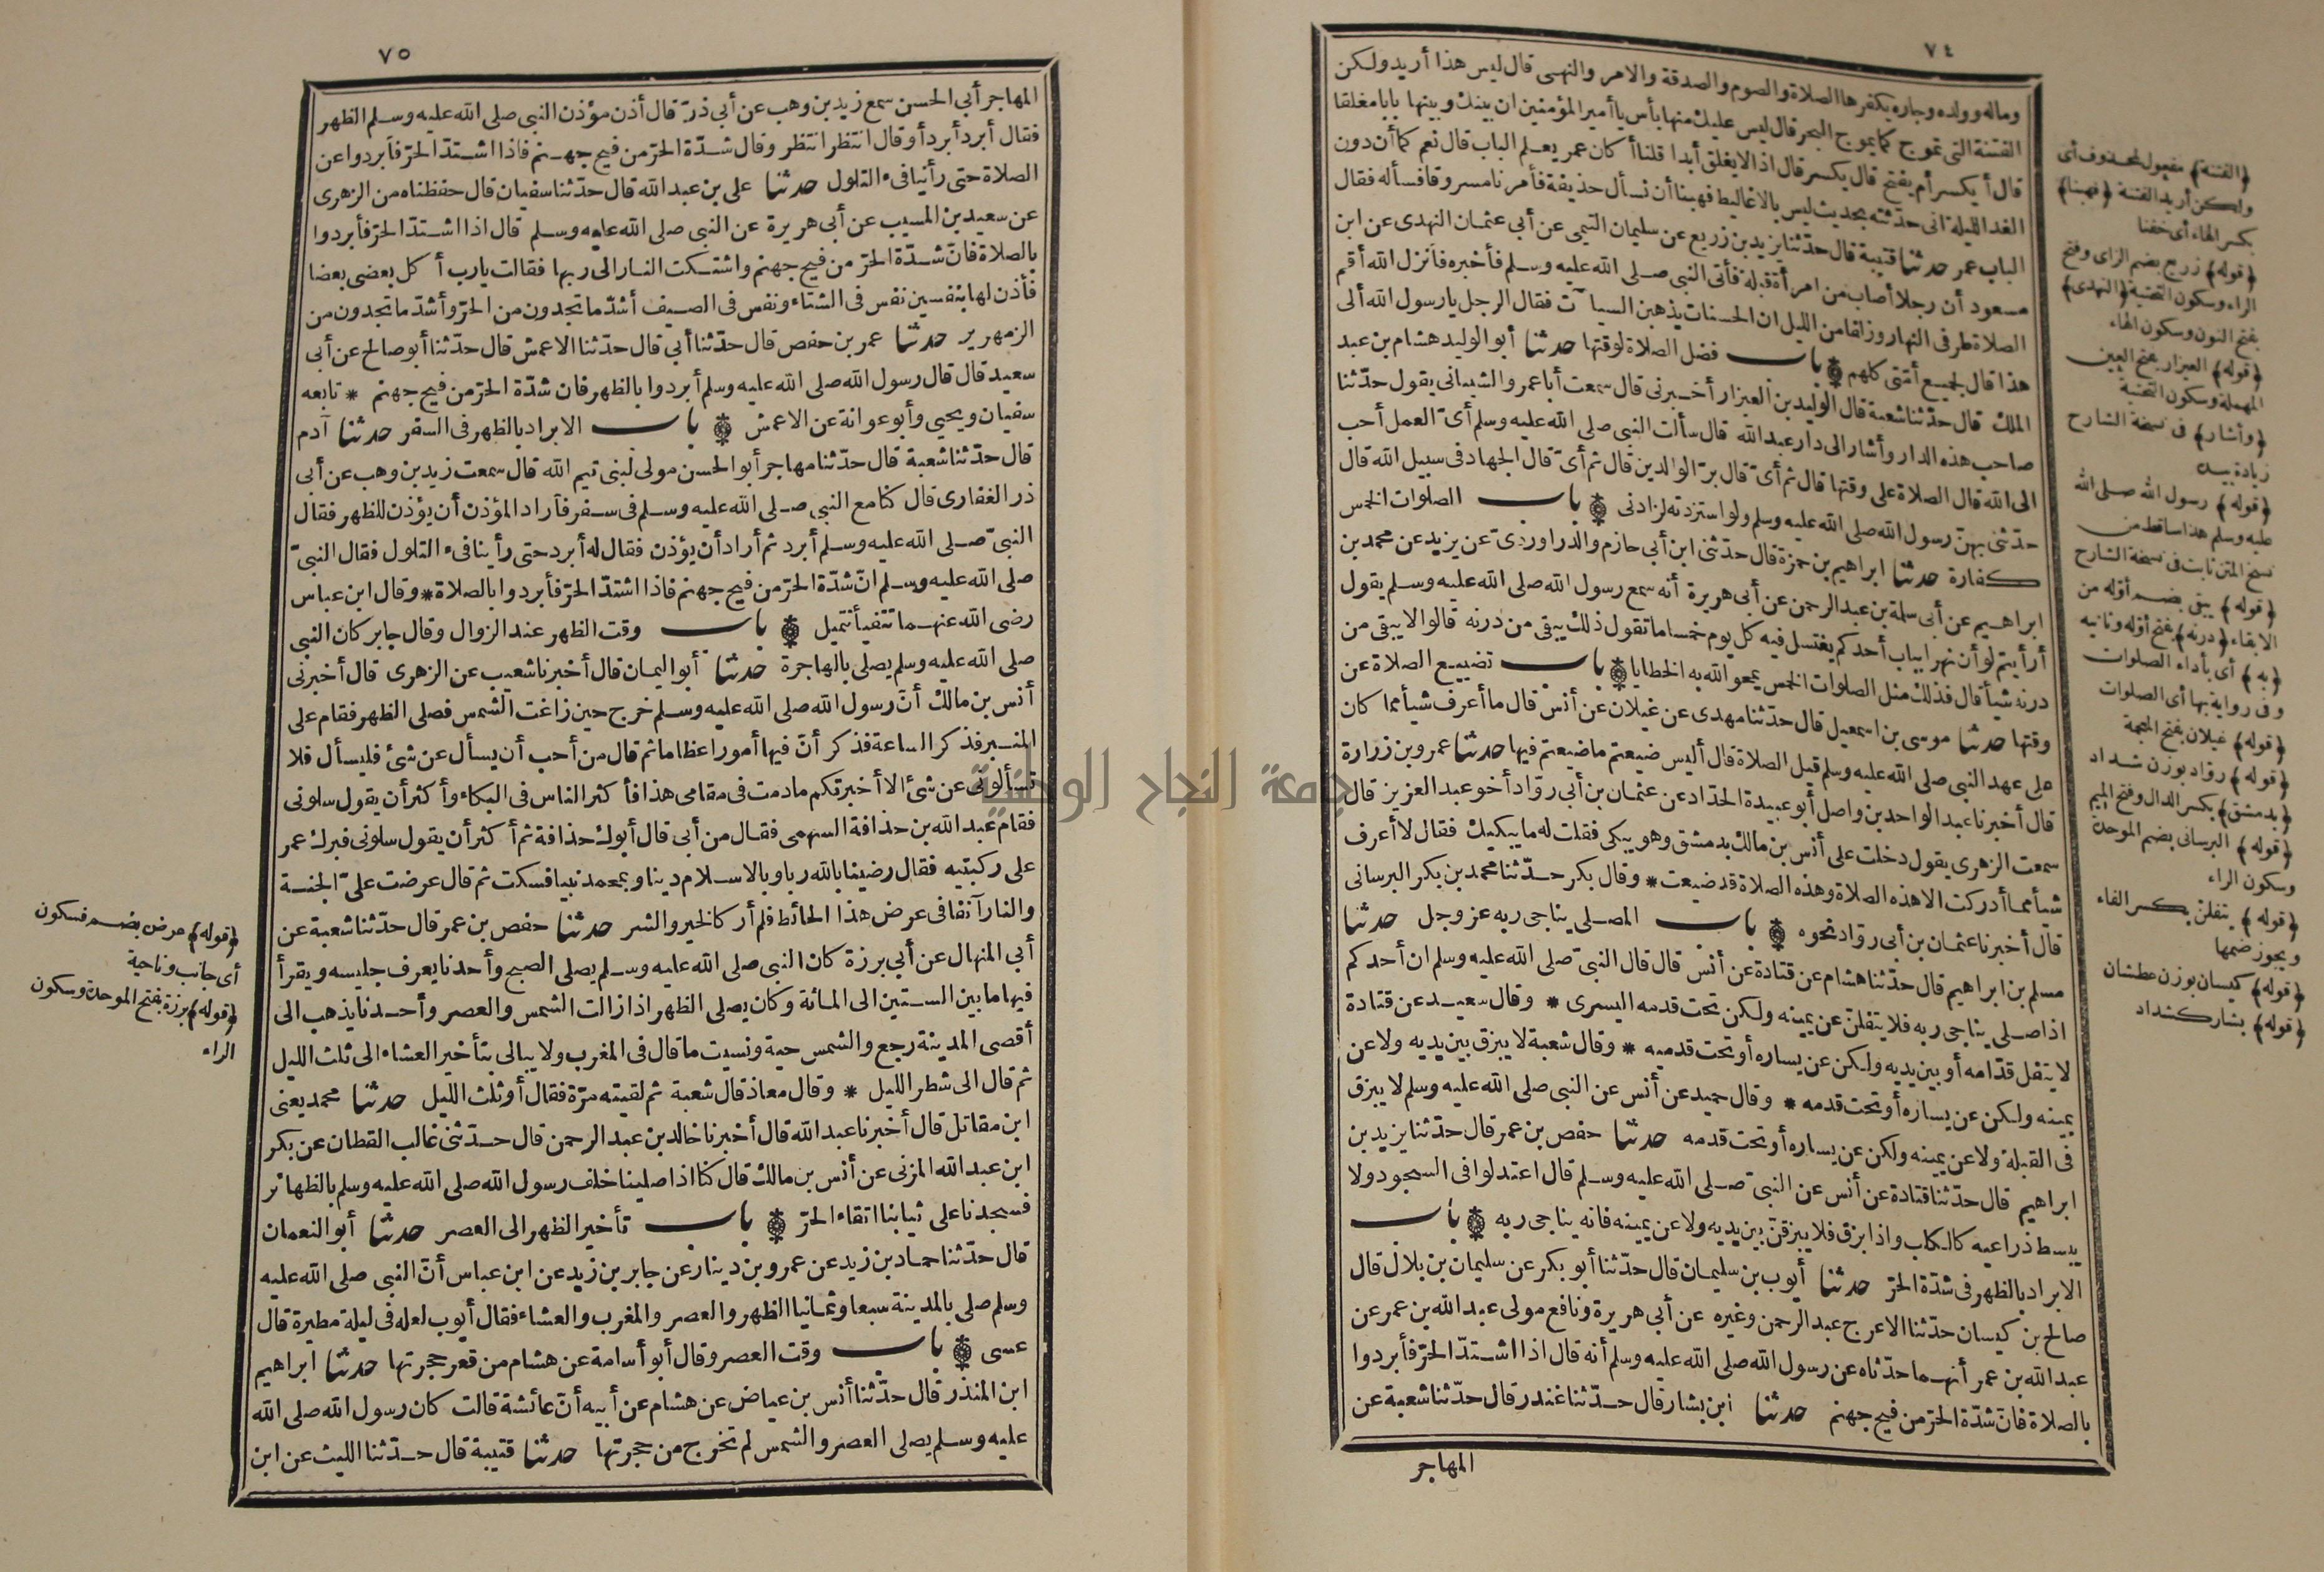 ٧٤
وماله وولده وجاره يكفرها الصلاة والصوم والصدقة والامر والنهى قال ليس هذا أريد ولكن
الفتنة التى تموج كما يموج البحر قال ليس عليك منها بأس يا أمير المؤمنين ان بينك وبينها بابا مغلقا
قال أيكسر أم يفتح قال يكسر قال اذا لا يغلق أبدا قلنا أكان عمر يعلم الباب قال نعم كما أن دون
الغد الليلة انى حدّثته بحديث ليس بالاغاليط فهبنا أن نسأل حذيفة فأمرنا مسروقا فسأله فقال
الباب عمر حدثنا قتيبة قال حدّثنا يزيد بن زريع عن سليمان التيمى عن أبى عثمان النهدى عن ابن
مسعود أن رجلا أصاب من امرأة قبلة فأتى النبى صلى الله عليه وسلم فأخبره فأنزل الله أقم
الصلاة طرفى النهار وزلفا من الليل ان الحسنات يذهبن السيآت فقال الرجل يا رسول الله ألى
هذا قال لجميع أمتى كلهم باب فضل الصلاة لوقتها حدثنا أبو الوليد هشام بن عبد
الملك قال حدّثنا شعبة قال الوليد بن العيزار أخبرنى قال سمعت أبا عمرو الشيبانى يقول حدّثنا
صاحب هذه الدار وأشار الى دار عبد الله قال سألت النبى صلى الله عليه وسلم أىّ العمل أحب
الى الله قال الصلاة على وقتها قال ثم أىّ قال برّ الوالدين قال ثم أىّ قال الجهاد فى سبيل الله قال
حدّثنى بهنّ رسول الله صلى الله عليه وسلم ولو استزدته لزادنى باب الصلوات الخمس
كفارة حدثنا ابراهيم بن حمزة قال حدّثنى ابن أبى حازم والدراوردىّ عن يزيد عن محمد بن
ابراهيم عن أبى سلمة بن عبد الرحمن عن أبى هريرة أنه سمع رسول الله صلى الله عليه وسلم يقول
أرأيتم لو أن نهرا بباب أحدكم يغتسل فيه كل يوم خمسا ما تقول ذلك يبقى من درنه قالوا لا يبقى من
درنه شيأ قال فذلك مثل الصلوات الخمس يمحو الله به الخطايا باب تضييع الصلاة عن
وقتها حدثنا موسى بن اسمعيل قال حدّثنا مهدى عن غيلان عن أنس قال ما أعرف شيأ مما كان
على عهد النبى صلى الله عليه وسلم قيل الصلاة قال أليس ضيعتم ما ضيعتم فيها حدثنا عمرو بن زرارة
قال أخبرنا عبد الواحد بن واصل أبو عبيدة الحدّاد عن عثمان بن أبى روّاد أخو عبد العزيز قال
سمعت الزهرى يقول دخلت على أنس بن مالك بدمشق وهو يبكى فقلت له ما يبكيك فقال لا أعرف
شيأ مما أدركت الا هذه الصلاة وهذه الصلاة قد ضيعت * وقال بكر حدّثنا محمد بن بكر البرسانى
قال أخبرنا عثمان بن أبى روّاد نحوه باب المصلى يناجى ربه عز وجل حدثنا
مسلم بن ابراهيم قال حدّثنا هشام عن قتادة عن أنس قال قال النبىّ صلى الله عليه وسلم ان أحدكم
اذا صلى يناجى ربه فلا يتفلنّ عن يمينه ولكن تحت قدمه اليسرى * وقال سعيد عن قتادة
لا يتفل قدّامه أو بين يديه ولكن عن يساره أو تحت قدميه * وقال شعبة لا يبزق بين يديه ولا عن
يمينه ولكن عن يساره أو تحت قدمه * وقال حميد عن أنس عن النبى صلى الله عليه وسلم لا يبزق
فى القبلة ولا عن يمينه ولكن عن يساره أو تحت قدمه حدثنا حفص بن عمر قال حدّثنا يزيد بن
ابراهيم قال حدّثنا قتادة عن أنس عن النبىّ صلى الله عليه وسلم قال اعتدلوا فى السجود ولا
يبسط ذراعيه كالكلب واذا بزق فلا يبزقنّ بين يديه ولا عن يمينه فانه يناجى ربه باب
الابراد بالظهر فى شدّة الحرّ حدثنا أيوب بن سليمان قال حدّثنا أبو بكر عن سليمان بن بلال قال
صالح بن كيسان حدّثنا الاعرج عبد الرحمن وغيره عن أبى هريرة ونافع مولى عبد الله بن عمر عن
عبد الله بن عمر أنهما حدّثاه عن رسول الله صلى الله عليه وسلم أنه قال اذا اشتدّ الحرّ فأبردوا
بالصلاة فانّ شدّة الحرّ من فيح جهنم حدثنا ابن بشار قال حدّثنا غندر قال حدّثنا شعبة عن
المهاجر
﴿الفتنة﴾ مفعول لمحذوف أى
ولكن أريد الفتنة ﴿فهبنا﴾
بكسر الهاء أى خفنا
﴿قوله﴾ زريع بضم الزاى وفتح
الراء وسكون التحتية ﴿النهدى﴾
بفتح النون وسكون الهاء
﴿قوله﴾ العيزار بفتح العين
المهملة وسكون التحتية
﴿وأشار﴾ فى نسخة الشارح
زيادة بيده
﴿قوله﴾ رسول الله صلى الله
عليه وسلم هذا ساقط من
نسخ المتن ثابت فى نسخة الشارح
﴿قوله﴾ يبقى بضم أوّله من
الابقاء ﴿درنه﴾ بفتح أوّله وثانيه
﴿به﴾ أى بأداء الصلوات
وفى رواية بها أى الصلوات
﴿قوله﴾ غيلان بفتح المعجمة
﴿قوله﴾ روّاد بوزن شداد
﴿بدمشق﴾ بكسر الدال وفتح الميم
﴿قوله﴾ البرسانى بضم الموحدة
وسكون الراء
﴿قوله﴾ يتفلنّ بكسر الفاء
ويجوز ضمها
﴿قوله﴾ كيسان بوزن عطشان
﴿قوله﴾ بشار كشداد
٧٥
المهاجر أبى الحسن سمع زيد بن وهب عن أبى ذرّ قال أذن مؤذن النبى صلى الله عليه وسلم الظهر
فقال أبرد أبرد أو قال انتظر انتظر وقال شدّة الحرّ من فيح جهنم فاذا اشتدّ الحرّ فأبردوا عن
الصلاة حتى رأينا فىء التلول حدثنا على بن عبد الله قال حدّثنا سفيان قال حفظناه من الزهرى
عن سعيد بن المسيب عن أبى هريرة عن النبى صلى الله عليه وسلم قال اذا اشتدّ الحرّ فأبردوا
بالصلاة فانّ شدّة الحرّ من فيح جهنم واشتكت النار الى ربها فقالت يا رب أكل بعضى بعضا
فأذن لها بنفسين نفس فى الشتاء ونفس فى الصيف أشدّ ما تجدون من الحرّ وأشدّ ما تجدون من
الزمهرير حدثنا عمر بن حفص قال حدّثنا أبى قال حدّثنا الاعمش قال حدّثنا أبو صالح عن أبى
سعيد قال قال رسول الله صلى الله عليه وسلم أبردوا بالظهر فان شدّة الحرّ من فيح جهنم * تابعه
سفيان ويحيى وأبو عوانة عن الاعمش باب الابراد بالظهر فى السفر حدثنا آدم
قال حدّثنا شعبة قال حدّثنا مهاجر أبو الحسن مولى لبنى تيم الله قال سمعت زيد بن وهب عن أبى
ذر الغفارى قال كنا مع النبى صلى الله عليه وسلم فى سفر فأراد المؤذن أن يؤذن للظهر فقال
النبىّ صلى الله عليه وسلم أبرد ثم أراد أن يؤذن فقال له أبرد حتى رأينا فىء التلول فقال النبىّ
صلى الله عليه وسلم انّ شدّة الحرّ من فيح جهنم فاذا اشتدّ الحرّ فأبردوا بالصلاة * وقال ابن عباس
رضى الله عنهما تتفيأ تتميل باب وقت الظهر عند الزوال وقال جابر كان النبى
صلى الله عليه وسلم يصلى بالهاجرة حدثنا أبو اليمان قال أخبرنا شعيب عن الزهرى قال أخبرنى
أنس بن مالك أنّ رسول الله صلى الله عليه وسلم خرج حين زاغت الشمس فصلى الظهر فقام على
المنبر فذكر الساعة فذكر أنّ فيها أمورا عظاما ثم قال من أحب أن يسأل عن شئ فليسأل فلا
تسألونى عن شئ الا أخبرتكم ما دمت فى مقامى هذا فأكثر الناس فى البكاء وأكثر أن يقول سلونى
فقام عبد الله بن حذافة السهمى فقال من أبى قال أبوك حذافة ثم أكثر أن يقول سلونى فبرك عمر
على ركبتيه فقال رضينا بالله ربا وبالاسلام دينا وبمحمد نبيا فسكت ثم قال عرضت علىّ الجنة
والنار آنفا فى عرض هذا الحائط فلم أر كالخير والشر حدثنا حفص بن عمر قال حدّثنا شعبة عن
أبى المنهال عن أبى برزة كان النبى صلى الله عليه وسلم يصلى الصبح وأحدنا يعرف جليسه ويقرأ
فيها ما بين الستين الى المائة وكان يصلى الظهر اذا زالت الشمس والعصر وأحدنا يذهب الى
أقصى المدينة رجع والشمس حية ونسيت ما قال فى المغرب ولا يبالى بتأخير العشاء الى ثلث الليل
ثم قال الى شطر الليل * وقال معاذ قال شعبة ثم لقيته مرّة فقال أو ثلث الليل حدثنا محمد يعنى
ابن مقاتل قال أخبرنا عبد الله قال أخبرنا خالد بن عبد الرحمن قال حدّثنى غالب القطان عن بكر
ابن عبد الله المزنى عن أنس بن مالك قال كنا اذا صلينا خلف رسول الله صلى الله عليه وسلم بالظهائر
فسجدنا على ثيابنا اتقاء الحرّ باب تأخير الظهر الى العصر حدثنا أبو النعمان
قال حدّثنا حماد بن زيد عن عمرو بن دينار عن جابر بن زيد عن ابن عباس أنّ النبى صلى الله عليه
وسلم صلى بالمدينة سبعا وثمانيا الظهر والعصر والمغرب والعشاء فقال أيوب لعله فى ليلة مطيرة قال
عسى باب وقت العصر وقال أبو أسامة عن هشام من قعر حجرتها حدثنا ابراهيم
ابن المنذر قال حدّثنا أنس بن عياض عن هشام عن أبيه أنّ عائشة قالت كان رسول الله صلى الله
عليه وسلم يصلى العصر والشمس لم تخرج من حجرتها حدثنا قتيبة قال حدّثنا الليث عن ابن
﴿قوله﴾ عرض بضم فسكون
أى جانب وناحية
﴿قوله﴾ برزة بفتح الموحدة وسكون
الراء
جامعة النجاح الوطنية